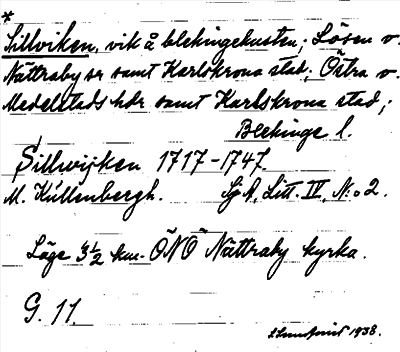 *
Sillviken, vik å blekingekusten; Lösen o.
Nättraby sr samt Karlskrona stad; Östra o.
Medelstads hdr samt Karlskrona stad;
Blekinge l.
Sillwijken 1717-1747.
M. Kullenbergh. Sjk. Litt. IV, N:o 2.
Läge 3½ km. ÖNÖ Nättraby kyrka.
G. 11.
1938.